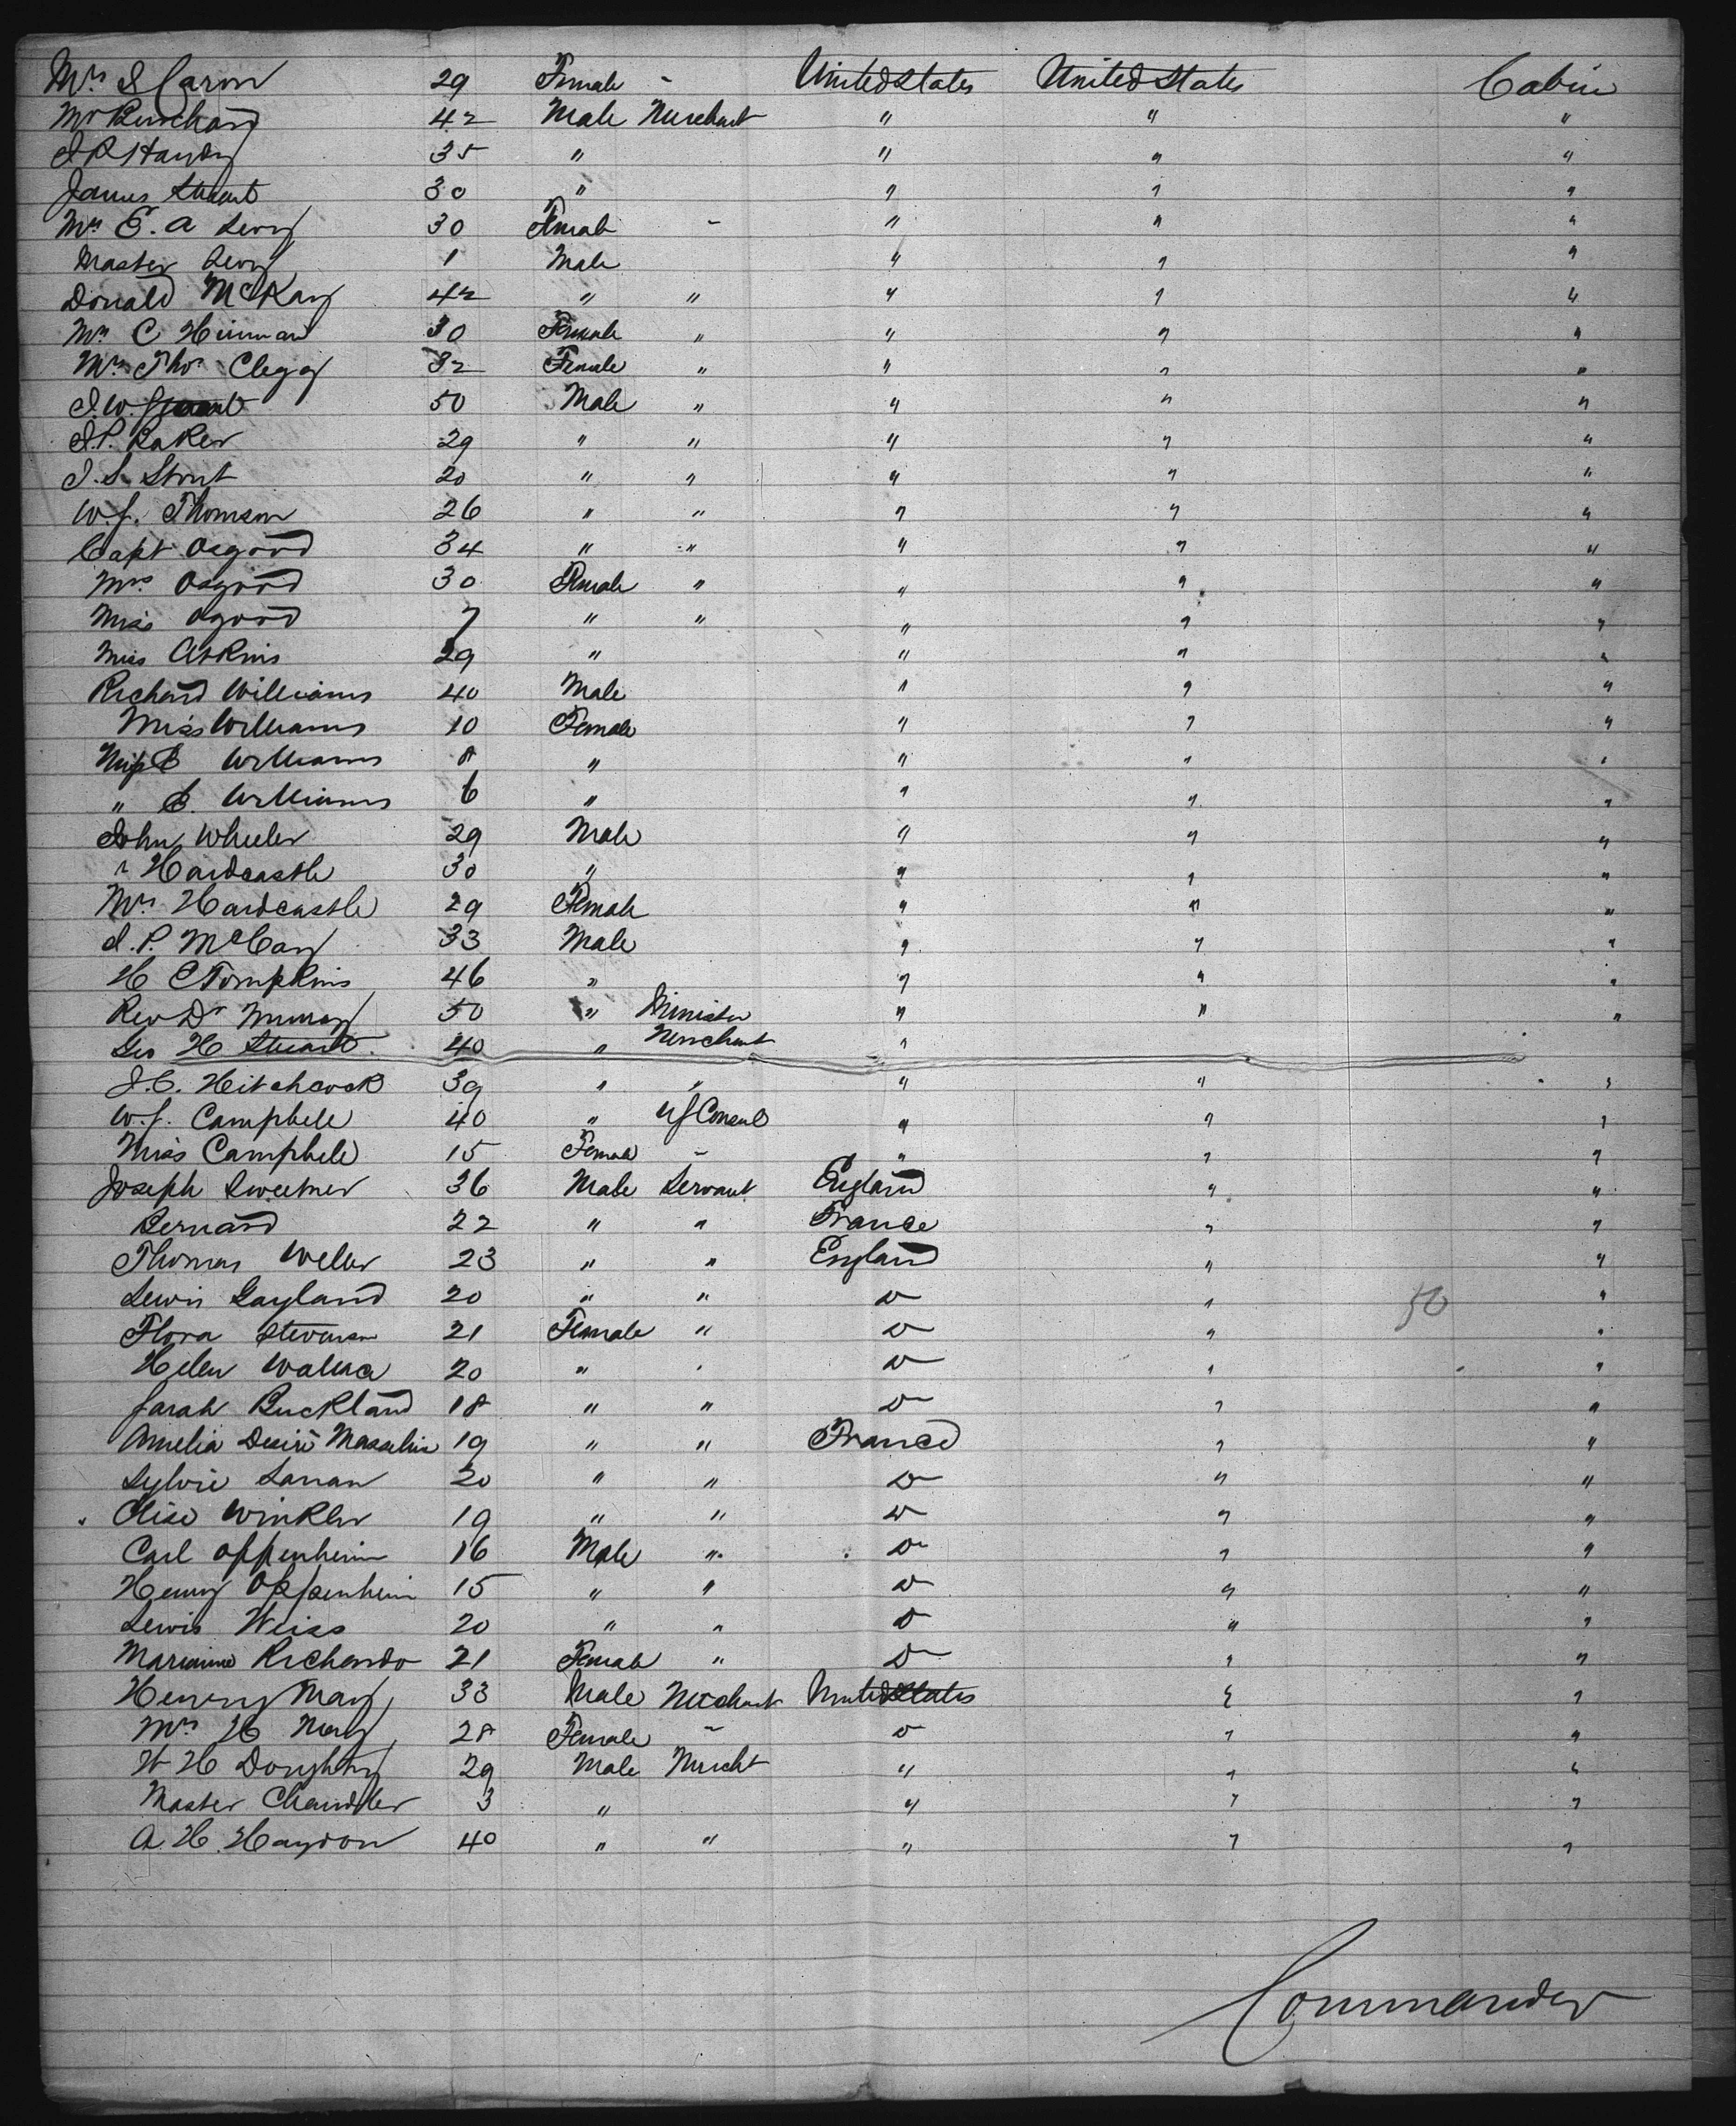 Mrs S Caron 29 Female - United States United States Cabin
Mr Burchard 42 Male Merchant " " "
J R Handy 35 " " " "
James Stuart 30 " " " "
Mrs E. A Levy 30 Female - " " "
Master Levy 1 Male " " "
Donald McKay 42 " " " " "
Mrs C Hinman 30 Female " " " "
Mrs Thos Clegg 32 Female " " " "
J. W. 50 Male " " " "
J. P. Baker 29 " " " " "
J. S. Strut 20 " " " " "
W. J. Thomson 26 " " " " "
Capt Osgood 34 " " " " "
Mrs Osgood 30 Female " " " "
Miss Ogood 7 " " " " "
Miss Atkins 29 " " " "
Richard Williams 40 Male " " "
Miss Williams 10 Female " " "
Miss B Williams 8 " " " "
" E. Williams 6 " " " "
John Wheeler 29 Male " " "
" Hardcastle 30 " " " "
Mrs Hardcastle 29 Female " " "
J. P. McCay 33 Male " " "
H C Tompkins 46 " " " "
Rev Dr Murray 50 " Minister " " "
Geo H Stuart 40 " Merchant "
J. C. Hitchcock 39 " " " " "
W. J. Campbell 40 " US Consul " " "
Miss Campbell 15 Female - " " "
Joseph Sweetner 36 Male Servant England " "
Bernard 22 " " France " "
Thomas Weller 23 " " England " "
Lewis Gayland 20 " " Do " 50 "
Flora Stevenson 21 Female " Do " "
Helen Wallace 20 " " Do " "
Sarah Buckland 18 " " Do " "
Amelia Desiré Masselin 19 " " France " "
Sylvie Lanan 20 " " Do " "
Elise Winkler 19 " " Do " "
Carl Oppenheim 16 Male " Do " "
Henry Oppenheim 15 " " Do " "
Lewis Weiss 20 " " Do " "
Marianne Richardo 21 Female " Do " "
Henry May 33 Male Merchant United States " "
Mrs H May 28 Female - Do " "
W H Doughty 29 Male Mercht " " "
Master Chandler 3 " " " "
A. H. Haydon 40 " " " " "
Commander